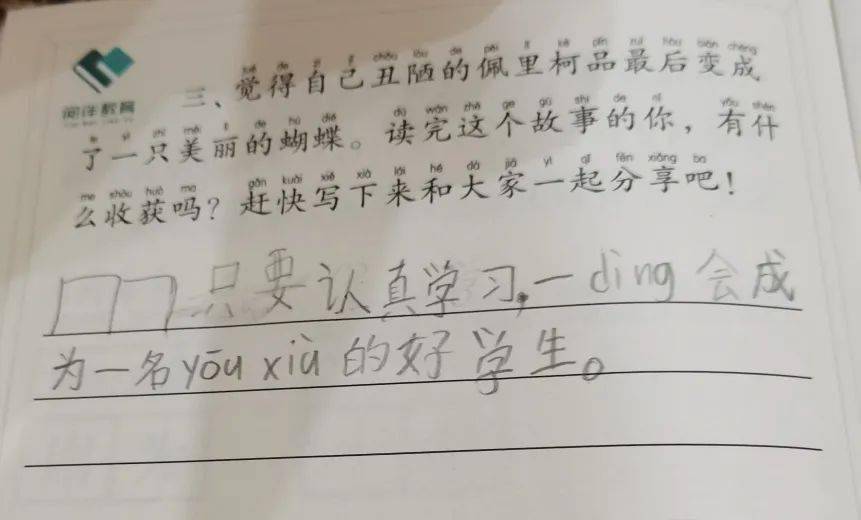 阅伴教育
三、觉得自己丑陋的佩里柯品最后变成
了一只美丽的蝴蝶。读完这个故事的你，有什
么收获吗？赶快写下来和大家一起分享吧！
只要认真学习，一dìng会成
为一名yōu xiù的好学生。